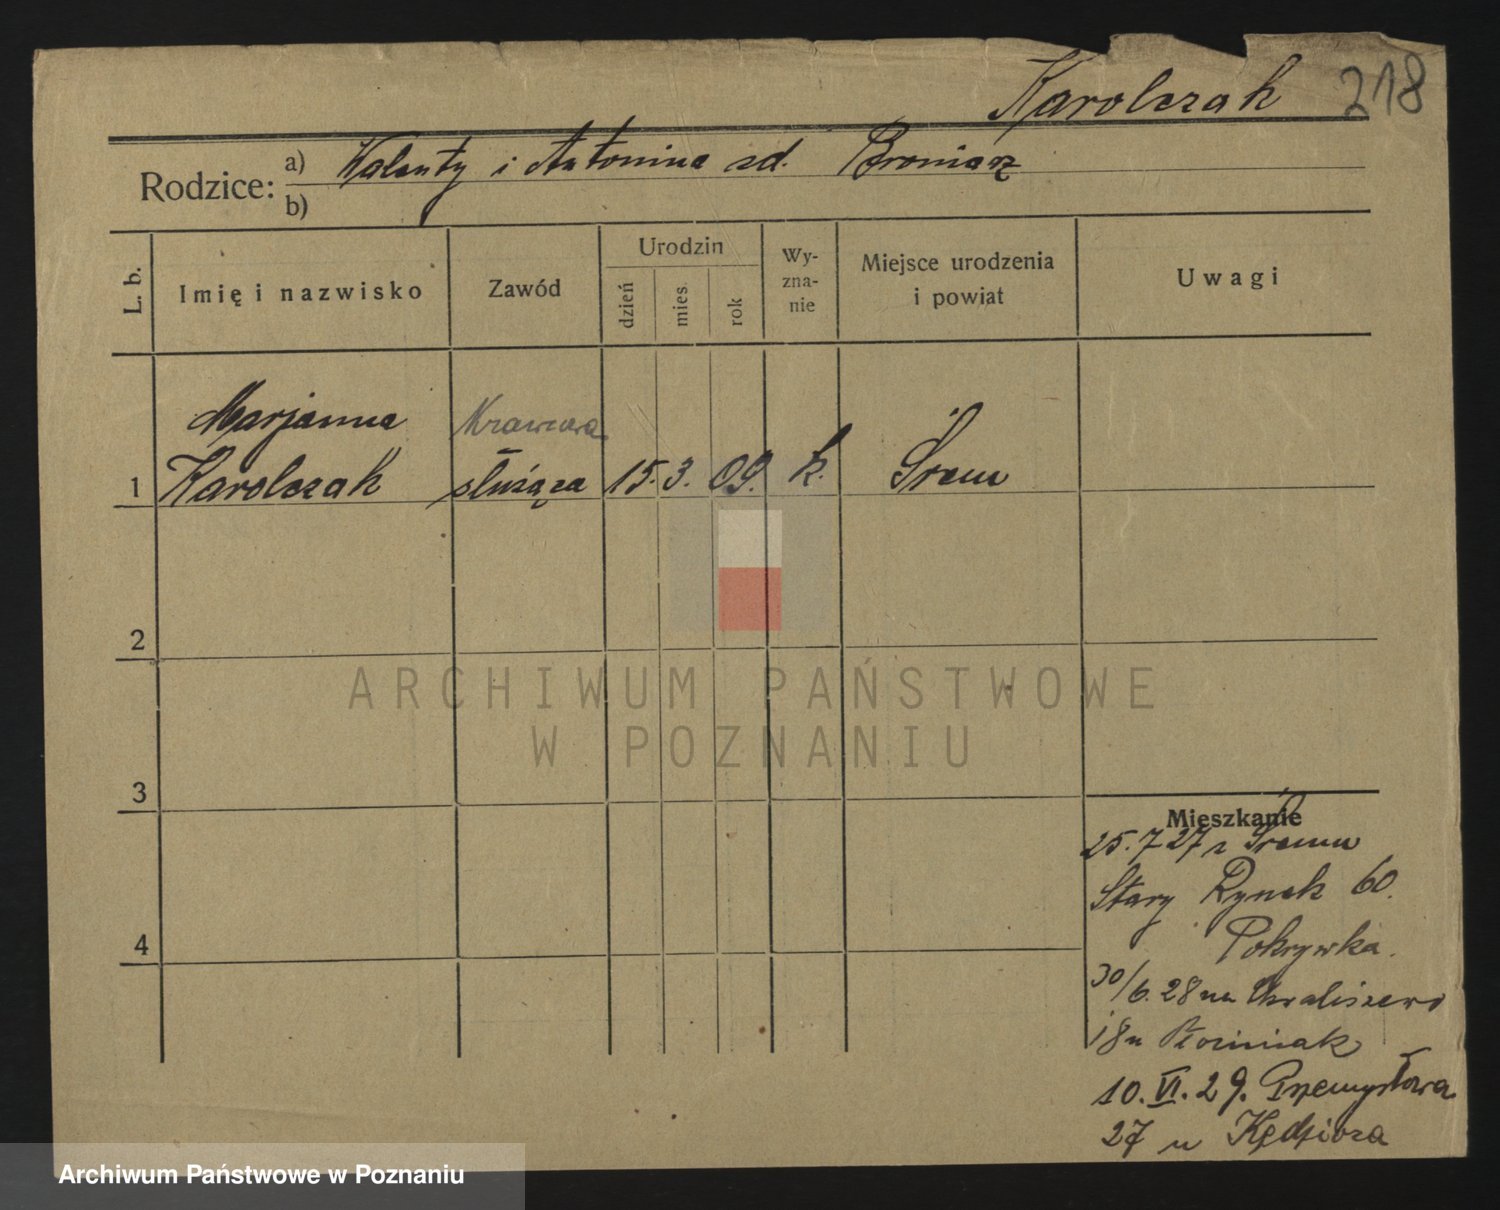 Karolczak 218
Rodzice: a) Walenty i Antonina zd. Broniarz
b)
L. b. Imię i nazwisko Zawód Urodzin dzień mies. rok Wyznanie Miejsce urodzenia i powiat Uwagi
Marjanna Krawcowa
1 Karolczak służąca 15. 3. 09. k. Śrem
2
3
4
Mieszkanie
25.7 27 z Śremu
Stary Rynek 60.
Pokrywka.
30/6. 28 na Chwaliszewo
18 u
10. VI. 29. Przemysłowa
27 u Kędziora
ARCHIWUM PAŃSTWOWE
W POZNANIU
Archiwum Państwowe w Poznaniu